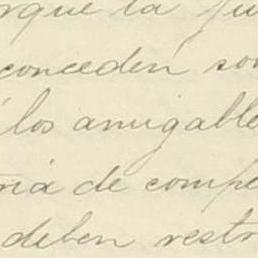 rque la ju
conceden son
los amigable
ria de compe
deben restr